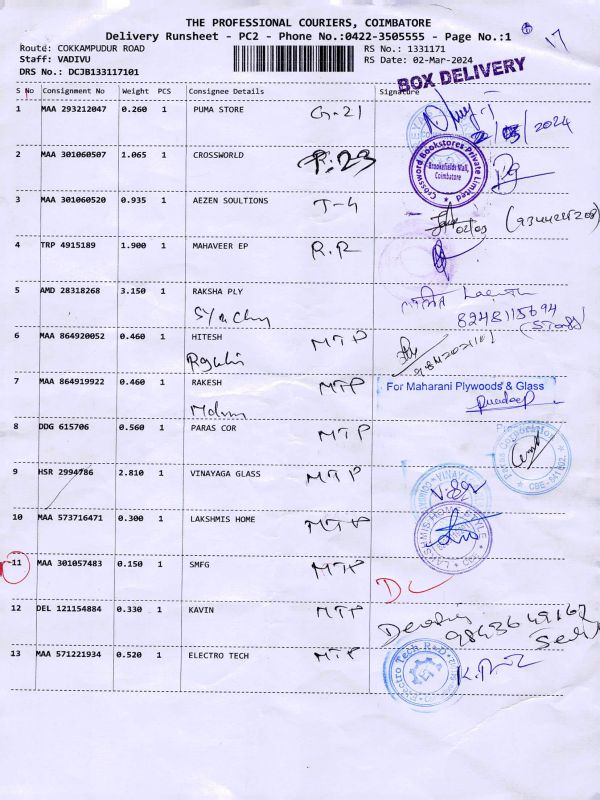 THE PROFESSIONAL COURIERS, COIMBATORE
Delivery Runsheet - PC2 - Phone No.:0422-3505555 - Page No.:1
17
Route: COKKAMPUDUR ROAD
RS No.: 1331171
Staff: VADIVU
RS Date: 02-Mar-2024
DRS No.: DCJB133117101
BOX DELIVERY
S No Consignment No Weight PCS Consignee Details Signature
1 MAA 293212047 0.260 1 PUMA STORE G.21
02/03/2024
2 MAA 301060507 1.065 1 CROSSWORLD F.23
Crossword Bookstores Private Limited
Brookefields Mall,
Coimbatore
3 MAA 301060520 0.935 1 AEZEN SOULTIONS T-4
02/03
4 TRP 4915189 1.900 1 MAHAVEER EP R.R
5 AMD 28318268 3.150 1 RAKSHA PLY
8248115694
6 MAA 864920052 0.460 1 HITESH MTP
7 MAA 864919922 0.460 1 RAKESH MTP
For Maharani Plywoods & Glass
8 DDG 615706 0.560 1 PARAS COR MTP
9 HSR 2994786 2.810 1 VINAYAGA GLASS MTP
10 MAA 573716471 0.300 1 LAKSHMIS HOME MTP
11 MAA 301057483 0.150 1 SMFG MTP
DL
12 DEL 121154884 0.330 1 KAVIN MTP
9843649167
13 MAA 571221934 0.520 1 ELECTRO TECH MTP
Electro Tech R&D